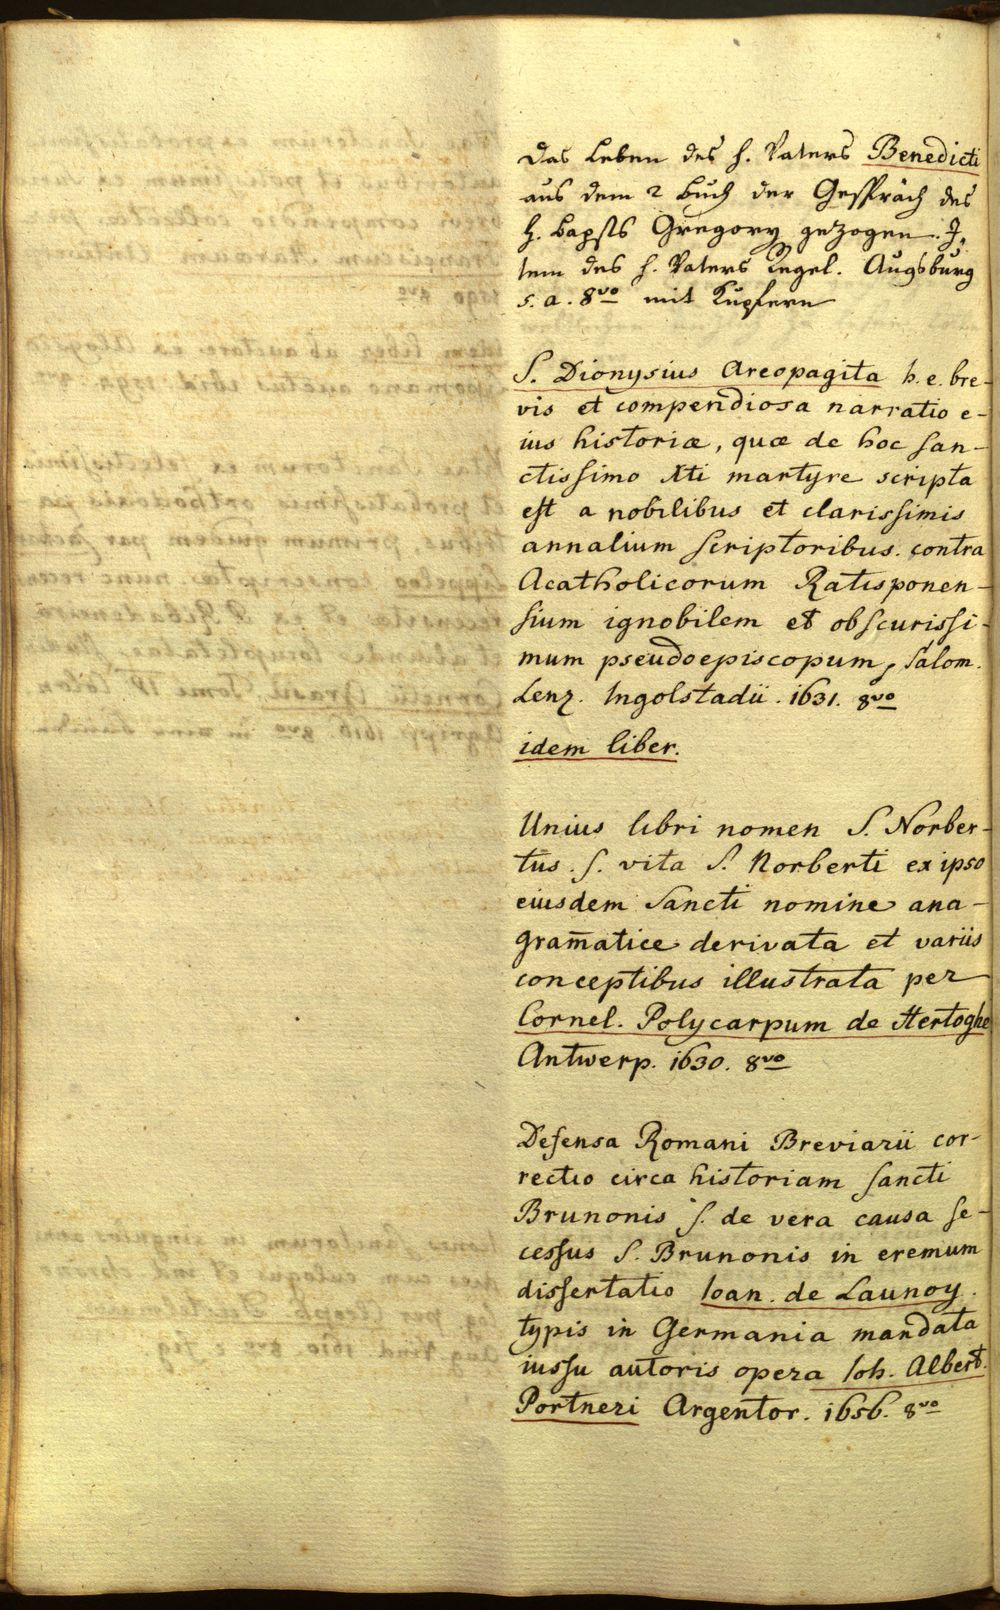 Das Leben des h. Vaters Benedicti
aus dem 2 Buch der Gespräch des
h. Bapsts Gregory gezogen. I-
tem des h. Vaters Regel. Augsburg
s. a. 8vo mit Kupfern
S. Dionysius Areopagita h. e. bre-
vis et compendiosa narratio e-
ius historiæ, quæ de hoc san-
ctissimo Xti martyre scripta
est a nobilibus et clarissimis
annalium scriptoribus. contra
Acatholicorum Ratisponen-
sium ignobilem et obscurissi-
mum pseudoepiscopum, Salom.
Lenz. Ingolstadii. 1631. 8vo
idem liber.
Unius libri nomen S. Norber-
tus. s. vita S. Norberti ex ipso
eiusdem Sancti nomine ana-
gram̄atice derivata et variis
conceptibus illustrata per
Cornel. Polycarpum de Hertoghe
Antwerp. 1630. 8vo
Defensa Romani Breviarii cor-
rectio circa historiam sancti
Brunonis s. de vera causa se-
cessus S. Brunonis in eremum
dissertatio Ioan. de Launoy.
typis in Germania mandata
iussu autoris opera Ioh. Albert.
Portneri Argentor. 1656. 8vo